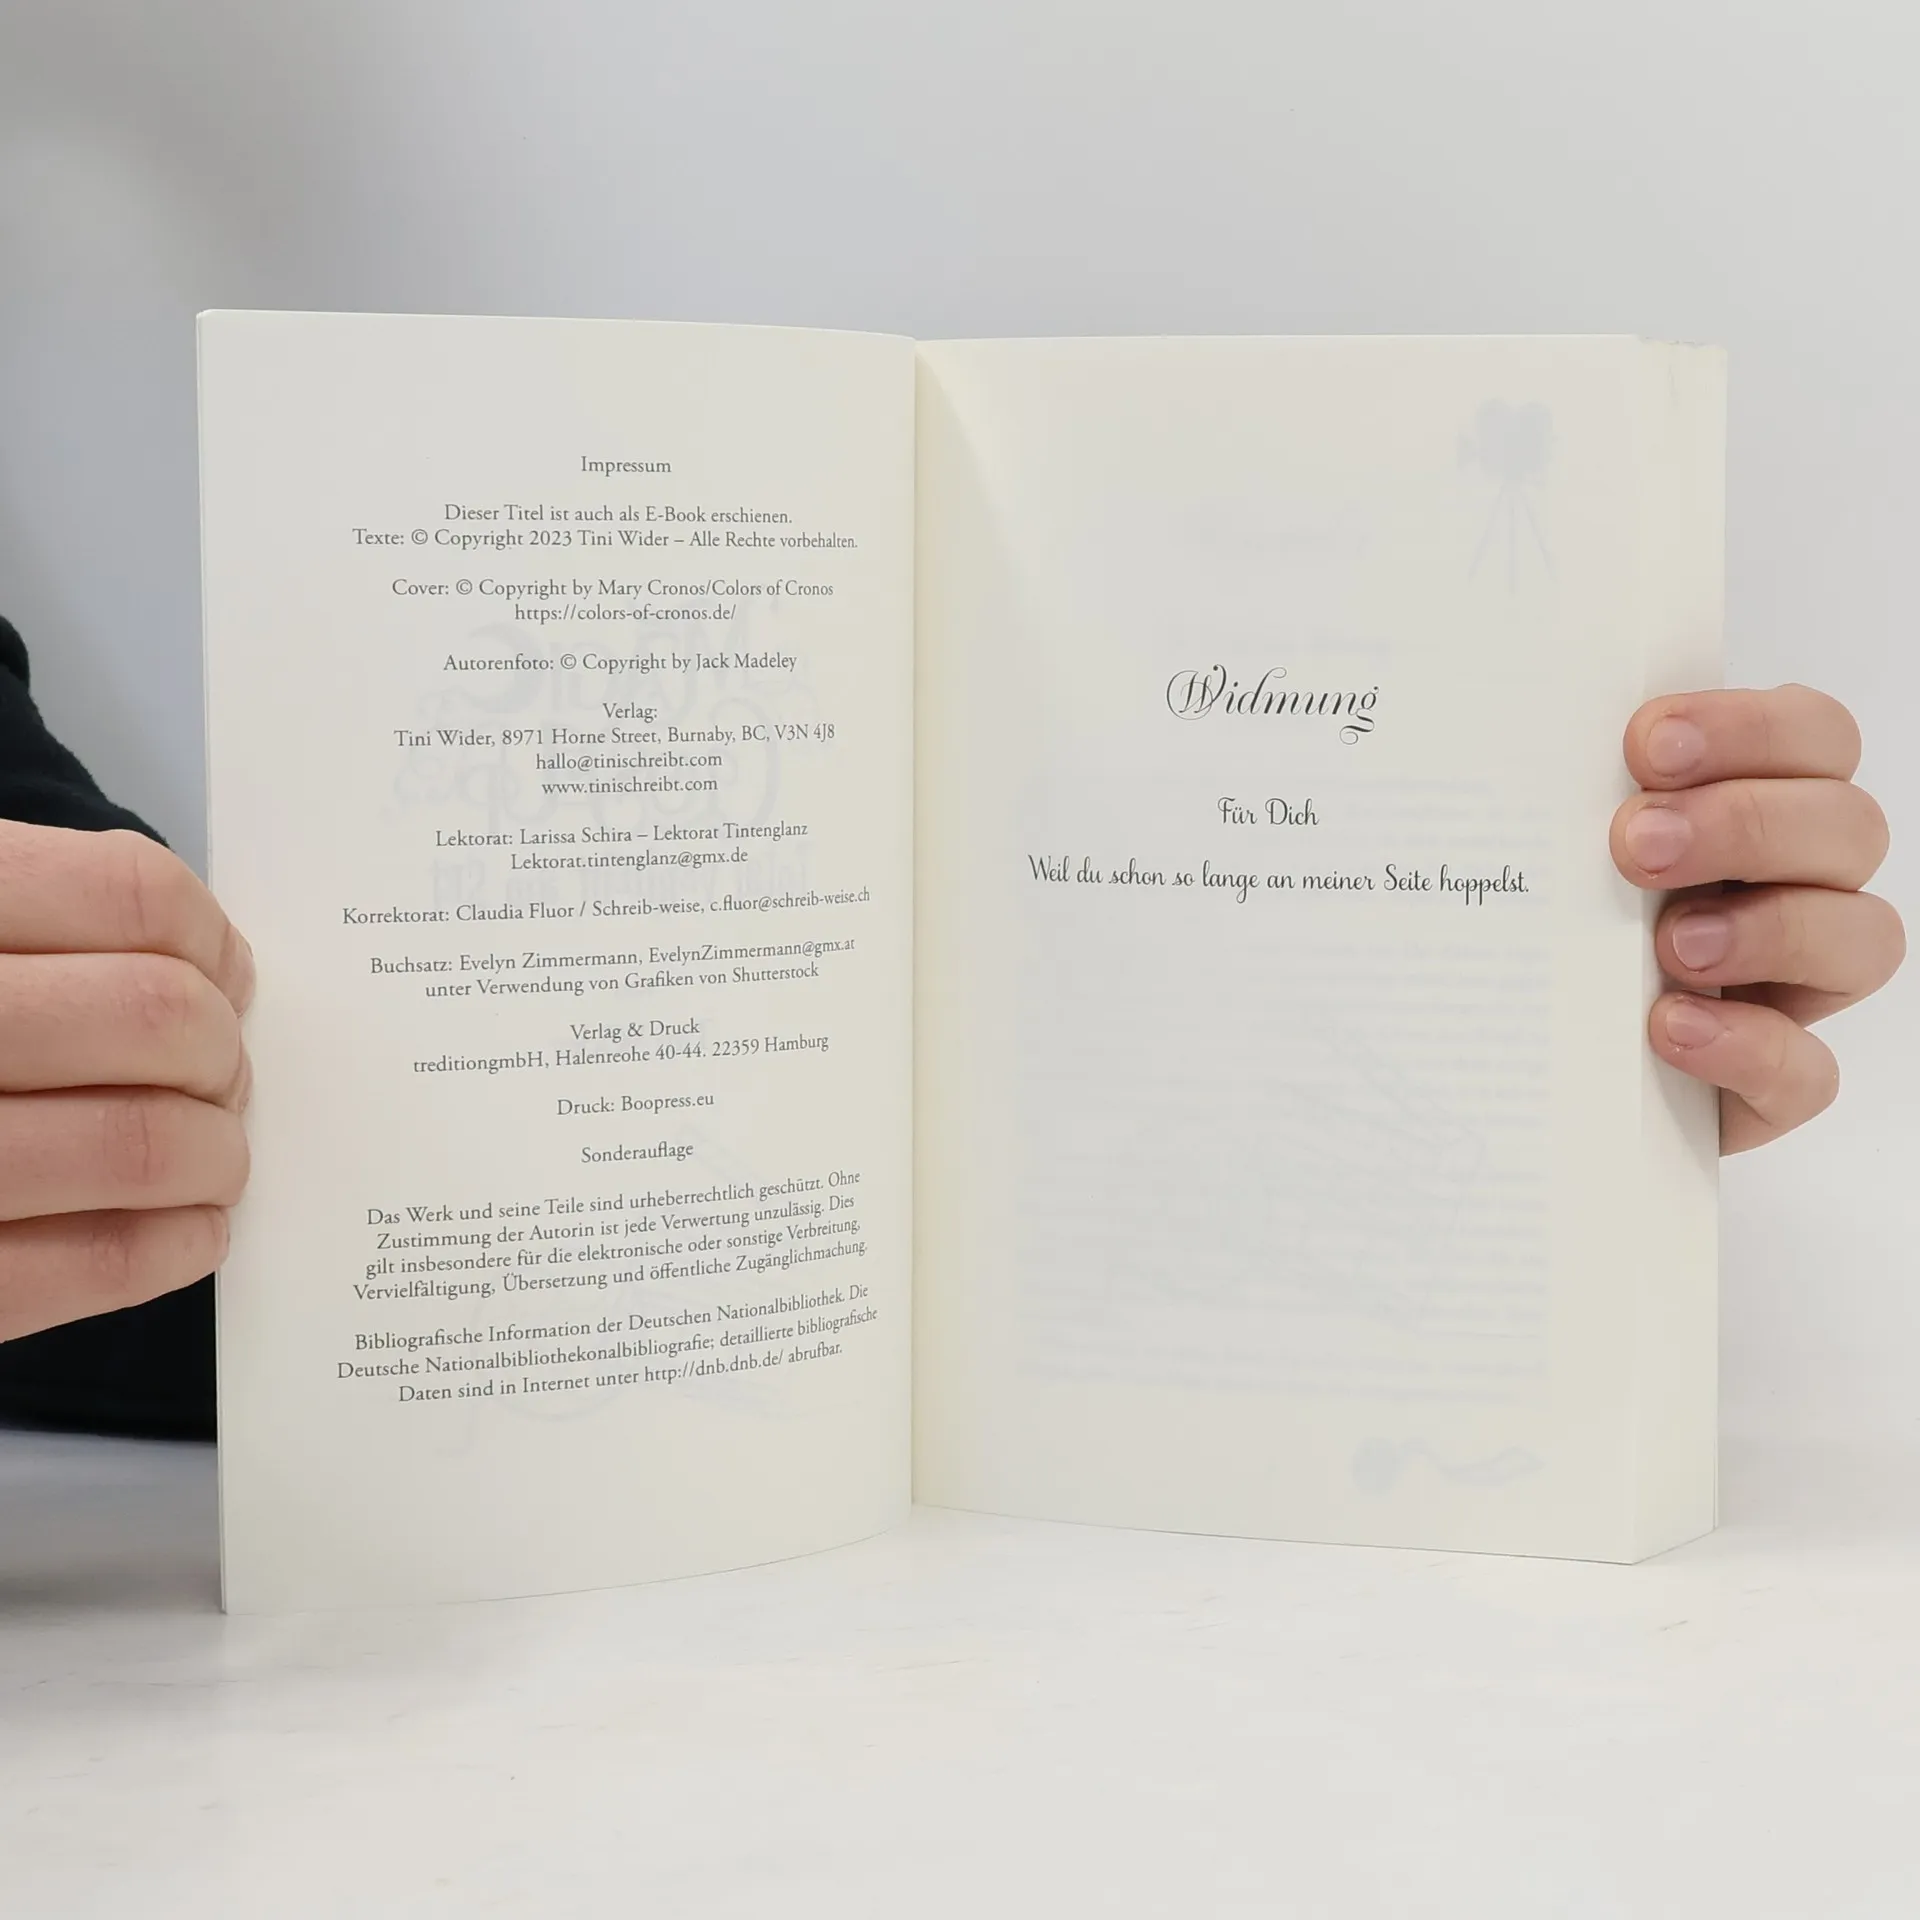 Impressum
Dieser Titel ist auch als E-Book erschienen.
Texte: © Copyright 2023 Tini Wider – Alle Rechte vorbehalten.
Cover: © Copyright by Mary Cronos/Colors of Cronos
https://colors-of-cronos.de/
Autorenfoto: © Copyright by Jack Madeley
Verlag:
Tini Wider, 8971 Horne Street, Burnaby, BC, V3N 4J8
hallo@tinischreibt.com
www.tinischreibt.com
Lektorat: Larissa Schira – Lektorat Tintenglanz
Lektorat.tintenglanz@gmx.de
Korrektorat: Claudia Fluor / Schreib-weise, c.fluor@schreib-weise.ch
Buchsatz: Evelyn Zimmermann, EvelynZimmermann@gmx.at
unter Verwendung von Grafiken von Shutterstock
Verlag & Druck
treditiongmbH, Halenreohe 40-44. 22359 Hamburg
Druck: Boopress.eu
Sonderauflage
Das Werk und seine Teile sind urheberrechtlich geschützt. Ohne
Zustimmung der Autorin ist jede Verwertung unzulässig. Dies
gilt insbesondere für die elektronische oder sonstige Verbreitung,
Vervielfältigung, Übersetzung und öffentliche Zugänglichmachung.
Bibliografische Information der Deutschen Nationalbibliothek. Die
Deutsche Nationalbibliothekonalbibliografie; detaillierte bibliografische
Daten sind in Internet unter http://dnb.dnb.de/ abrufbar.
Widmung
Für Dich
Weil du schon so lange an meiner Seite hoppelst.